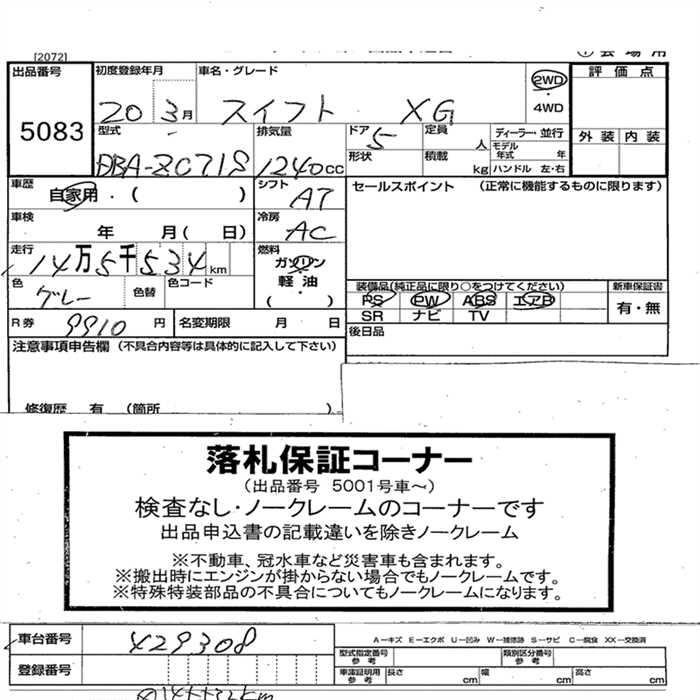 [2072]
① 会場用
出品番号 初度登録年月 車名・グレード 2WD 評価点
5083 20 3月 スイフト XG ・ 4WD
型式 排気量 ドア 5 定員 人 ディーラー・並行 外装 内装
DBA-ZC71S 1240cc 形状 積載 kg モデル年式 年
ハンドル 左・右
車歴 自家用・( ) シフト AT セールスポイント (正常に機能するものに限ります)
車検 年 月( 日) 冷房 AC
走行 14万5千534km 燃料 ガソリン
軽油
( ・ )
色 グレー 色替 色コード 装備品(純正品に限り○をつけてください) 新車保証書
PS PW ABS エアB 有・無
SR ナビ TV
R券 9910円 名変期限 月 日 後日品
注意事項申告欄 (不具合内容等は具体的に記入して下さい)
修復歴 有 (箇所 )
落札保証コーナー
(出品番号 5001号車～)
検査なし・ノークレームのコーナーです
出品申込書の記載違いを除きノークレーム
※不動車、冠水車など災害車も含まれます。
※搬出時にエンジンが掛からない場合でもノークレームです。
※特殊特装部品の不具合についてもノークレームになります。
車台番号 429308 A-キズ E-エクボ U-凹み W-補修跡 S-サビ C-腐食 XX-交換済
型式指定番号 参考 類別区分番号 参考
登録番号 車庫証明用 参考 長さ cm 幅 cm 高さ cm